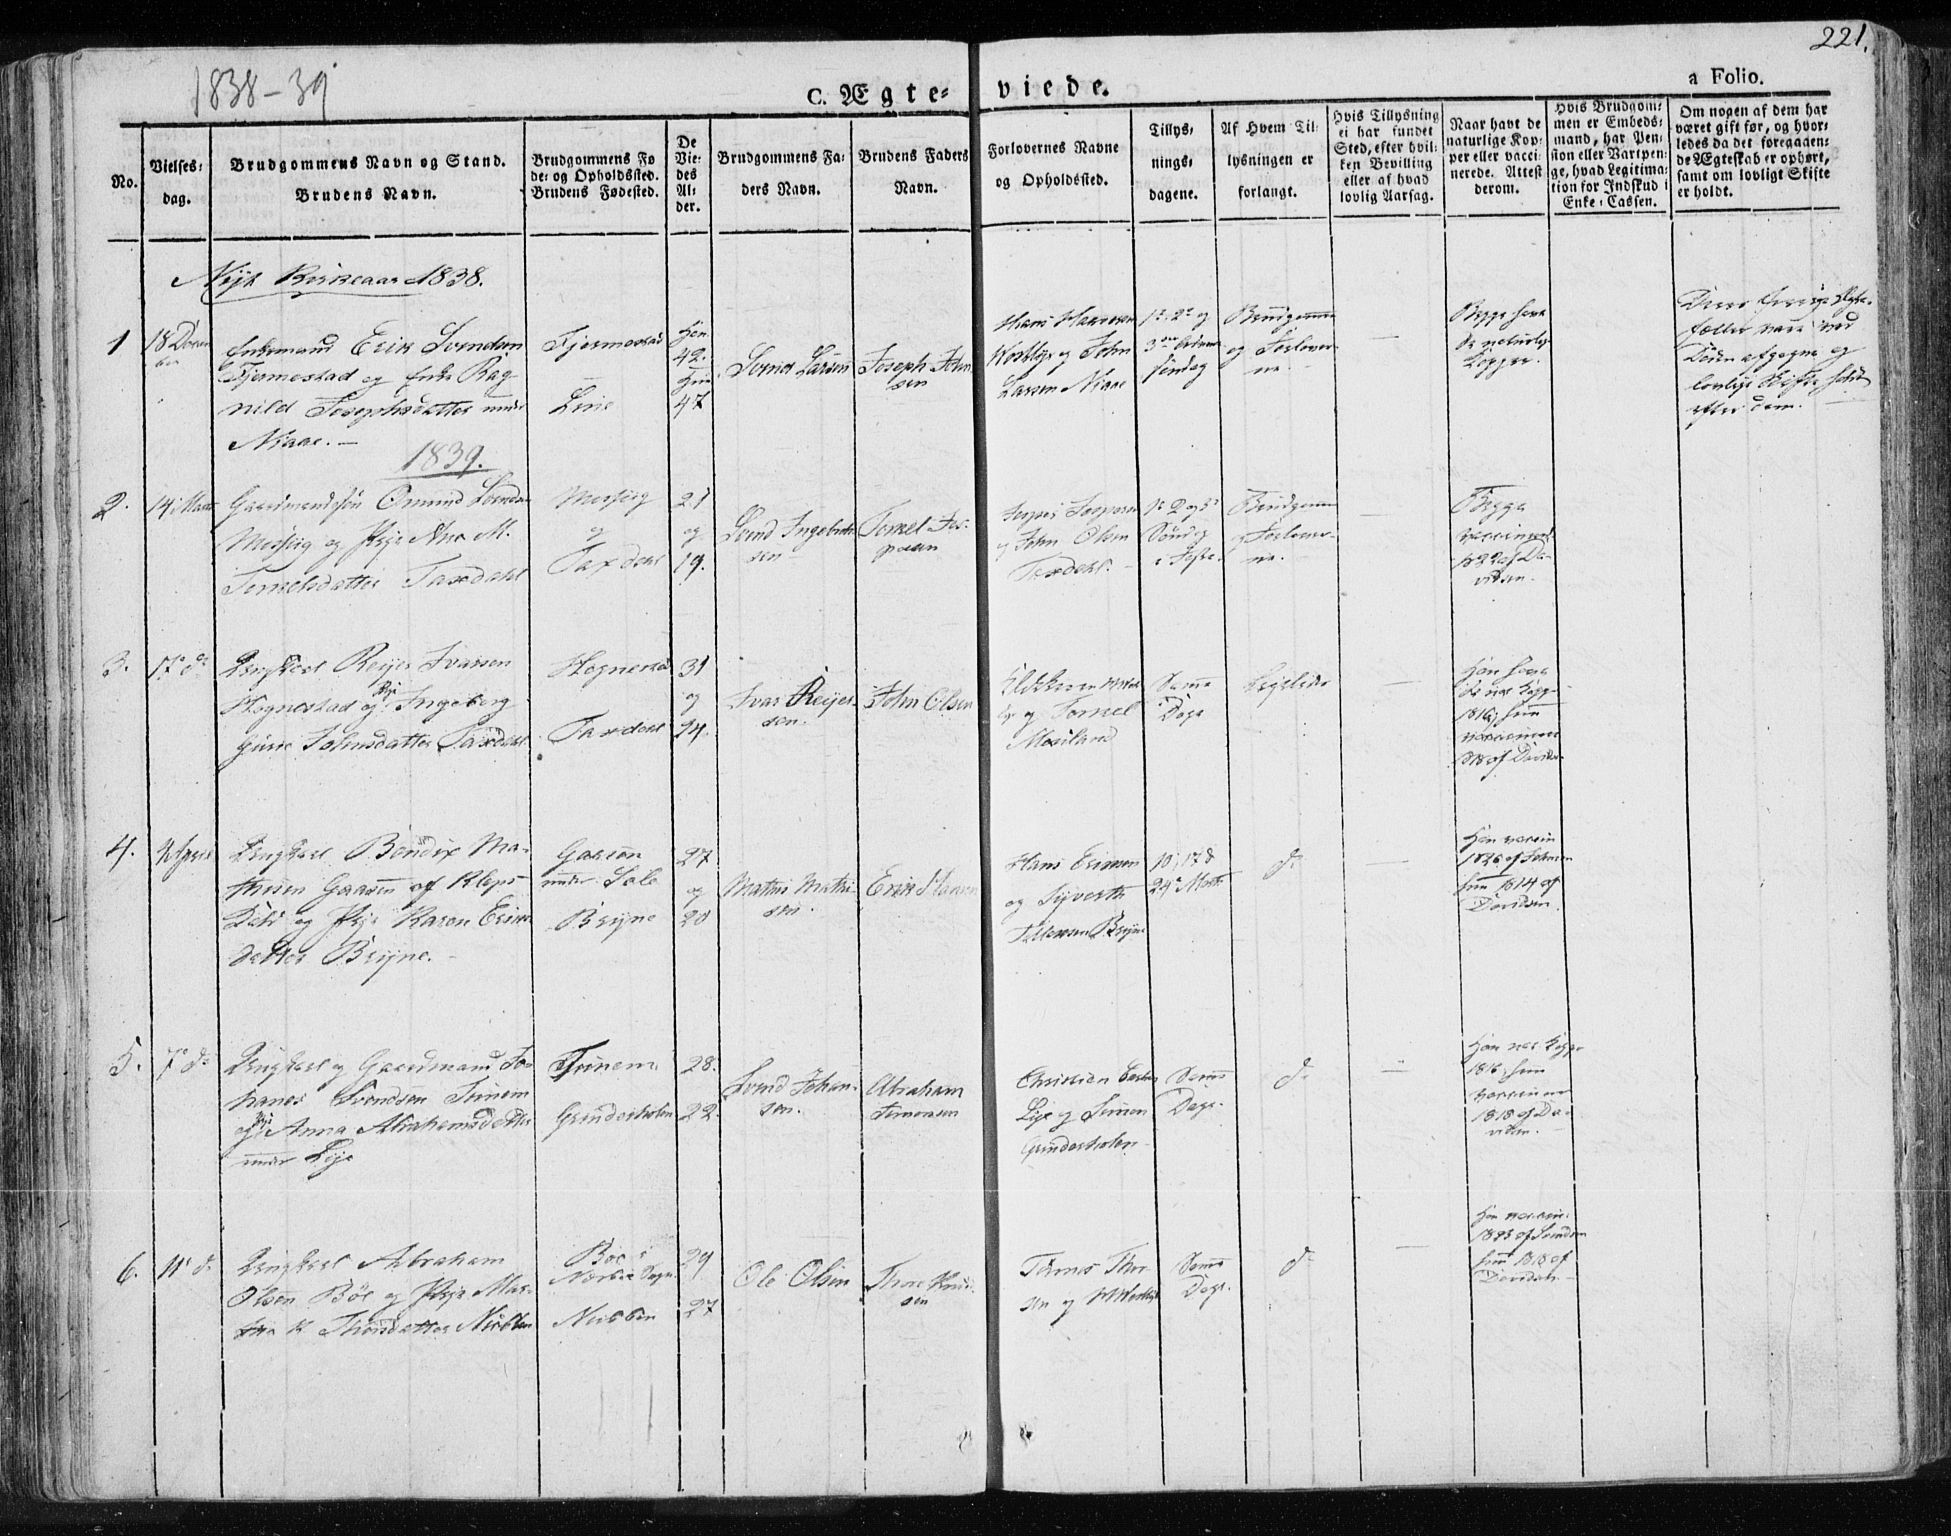 1838-39
221.
C. Ægte-
viede.
a Folio.
No.
Vielses-
dag.
Brudgommens Navn og Stand.
Brudens Navn.
Brudgommens Fø
de- og Opholdssted.
Brudens Fødested.
De
Vie-
des
Al-
der.
Brudgommens Fa-
ders Navn.
Brudens Faders
Navn.
Forlovernes Navne
og Opholdssted.
Tillys-
nings-
dagene.
Af Hvem Til-
lysningen er
forlangt.
Hvis Tillysning
ei har fundet
Sted, efter hvil-
ken Bevilling
eller af hvad
lovlig Aarsag.
Naar havt de
naturlige Kop-
per eller vacci-
nerede. Attest
derom.
Hvis Brudgom-
men er Embeds-
mand, har Pen-
sion eller Vartpen-
ge, hvad Legitima-
tion for Indskud i
Enke-Cassen.
Om nogen af dem har
været gift før, og hvor-
ledes da det foregaaen-
de Ægteskab er ophørt,
samt om lovligt Skifte
er holdt.
Nyt Kirkeaar 1838.
1
18 Decem
ber
Enkemand Erik Svendsen
Fjermestad og Enke Rag
nild Josephsdatter under
Niaae.
Fjermestad
Line
Han
42.
Hun
47
Svend Larsen
Joseph John
sen
Hans Haavesen
og John
Larsen Niaae
1e, 2e og
3die Advents
søndag
Brudgommen
og Forlover-
ne.
Begge have
de naturlige
Kopper.
Deres forrige Ægte-
fæller vare ved
Døden afgagne og
lovlige Skifte holdt
efter dem.
1839.
2.
14 Marts
Gaardmandssøn Omund Svendsen
og Pige Ane M.
Tornelsdatter Taxdahl
og
Taxdahl
21
og
19.
Svend Ingebreth
sen
Tornel Jes-
persen
Jesper Jespersen
og John Olsen
Taxdahl.
1e 2 og 3e
Søndag
i Faste.
Brudgommen
og Forlover-
ne.
Begge
vaccineret
af Da-
vidsen.
3.
17e de
Ungkarl Reijer Ivarsen
Hognestad og Pige Ingeborg
Gurie Johnsdatter Taxdahl
Hognestad
Taxdahl
31
og
24.
Ivar Reijer-
sen.
John Olsen
og Tornel
Mosiland
Samme
Dage
Ligeledes
Han havt
de nat. Kopp.
1816, hun
vaccineret
1818 af Davidsen
4.
April
Ungkarl Bendix Ma-
thisen Gaasøn af Klep
og Pige Karen Eriks
datter Bryne.
Gaasøn
under Sole
Bryne
27
og
20
Mathis Mathi
sen.
Erik Hansen
Hans Eriksen
og Syverth
Tollevsen Bryne
10, 17 &
24e Marts
do
Han vaccin
1826 af
hun 1814 af
Davidsen.
5.
7e de
Ungkarl og Gaardmand Jo-
hanes Svendsen Tunem
og Pige Anna Abrahamsdatter
under Lye
Tunem
Grindesholen
28.
22.
Svend Johan-
sen.
Abraham
Simonsen
Christian
Lye og Simon
Grindesholen
Samme
Dage.
do
Han nat. Kopp.
1816, hun
vaccineret
1818 af Da-
vidsen.
6.
11e de
Ungkarl Abraham
Olsen Böe og Pige Mar-
tha K Thoresdatter
Böe i
Sogn
29
27
Ole Olsen
Thore Knud-
sen
Tönnes Thor
sen og
Samme
Dage.
do
Han vaccin.
af Svendsen
hun 1818 af
Davidsen